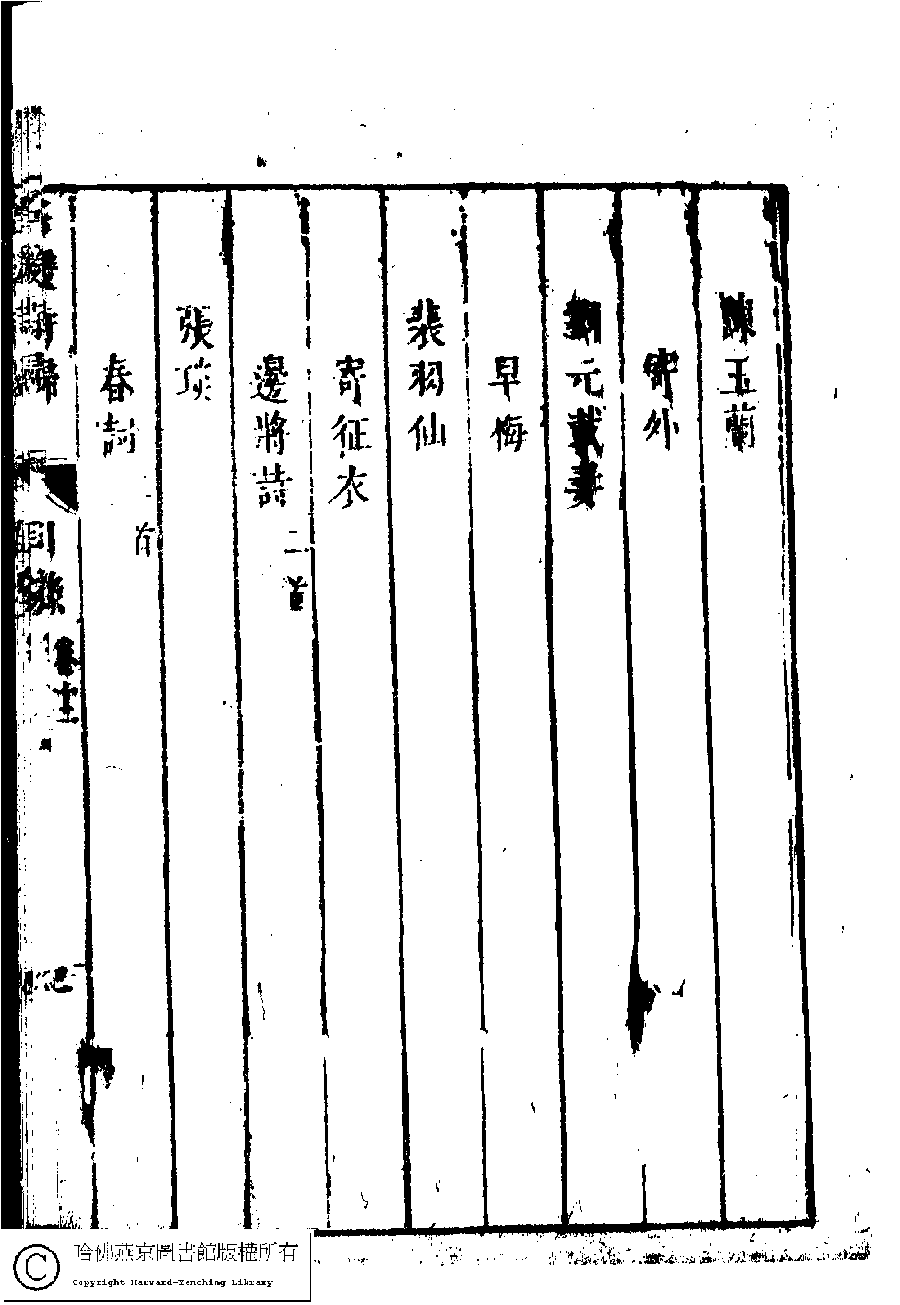 陳玉蘭
寄外
劉元載妻
早梅
裴羽仙
寄征衣
邊將詩 二首
張琰
春詞 首
目錄 卷十二
哈佛燕京圖書館版權所有
Copyright Harvard-Yenching Library